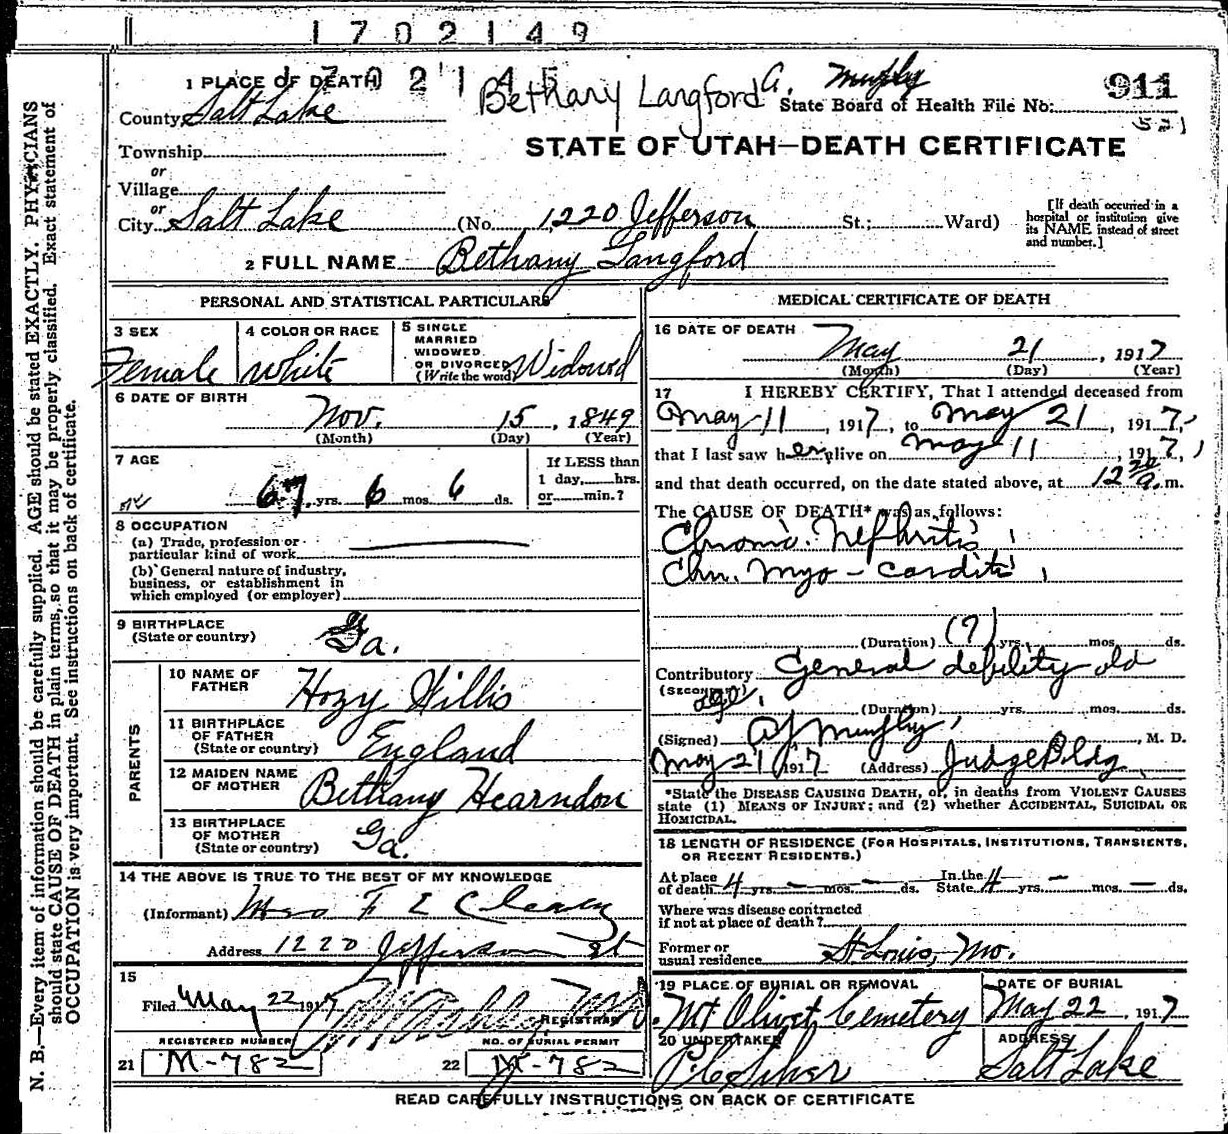 1702149
1 PLACE OF DEATH
Bethany Langford
Murphy
State Board of Health File No. 911
County Salt Lake
STATE OF UTAH—DEATH CERTIFICATE
Township
or
Village
or
City Salt Lake (No. 1220 Jefferson St.; Ward)
[If death occurred in a
hospital or institution give
its NAME instead of street
and number.]
2 FULL NAME Bethany Langford
PERSONAL AND STATISTICAL PARTICULARS
3 SEX
Female
4 COLOR OR RACE
White
5 SINGLE
MARRIED
WIDOWED
OR DIVORCED
(Write the word) Widowed
6 DATE OF BIRTH
Nov. 15, 1849
(Month) (Day) (Year)
7 AGE
67 yrs. 6 mos. 6 ds.
If LESS than
1 day, hrs.
or min.?
8 OCCUPATION
(a) Trade, profession or
particular kind of work
(b) General nature of industry,
business, or establishment in
which employed (or employer)
9 BIRTHPLACE
(State or country) Ga.
PARENTS
10 NAME OF
FATHER Hozy Hillis
11 BIRTHPLACE
OF FATHER
(State or country) England
12 MAIDEN NAME
OF MOTHER Bethany Hearndon
13 BIRTHPLACE
OF MOTHER
(State or country) Ga.
14 THE ABOVE IS TRUE TO THE BEST OF MY KNOWLEDGE
(Informant) Mrs F E Cleary
Address 1220 Jefferson St
15
Filed May 22 1917
REGISTRAR
REGISTERED NUMBER
21 M-782
NO. OF BURIAL PERMIT
22 M-782
MEDICAL CERTIFICATE OF DEATH
16 DATE OF DEATH
May 21, 1917
(Month) (Day) (Year)
17 I HEREBY CERTIFY, That I attended deceased from
May 11, 1917, to May 21, 1917,
that I last saw her alive on May 11, 1917,
and that death occurred, on the date stated above, at 12 30 a. m.
The CAUSE OF DEATH* was as follows:
Chronic. Nephritis
Chn. Myo-carditis
(Duration) (?) yrs. mos. ds.
Contributory General debility old
(SECONDARY) age.
(Duration) yrs. mos. ds.
(Signed) A J Murphy, M. D.
May 21 1917 (Address) Judge Bldg
*State the DISEASE CAUSING DEATH, or, in deaths from VIOLENT CAUSES
state (1) MEANS OF INJURY; and (2) whether ACCIDENTAL, SUICIDAL OR
HOMICIDAL.
18 LENGTH OF RESIDENCE (FOR HOSPITALS, INSTITUTIONS, TRANSIENTS,
OR RECENT RESIDENTS.)
At place In the
of death 4 yrs. — mos. — ds. State 4 yrs. — mos. — ds.
Where was disease contracted
if not at place of death?
Former or
usual residence St Louis, Mo.
19 PLACE OF BURIAL OR REMOVAL
Mt Olivet Cemetery
DATE OF BURIAL
May 22, 1917
20 UNDERTAKER
ADDRESS
Salt Lake
READ CAREFULLY INSTRUCTIONS ON BACK OF CERTIFICATE
N. B.—Every item of information should be carefully supplied. AGE should be stated EXACTLY. PHYSICIANS
should state CAUSE OF DEATH in plain terms, so that it may be properly classified. Exact statement of
OCCUPATION is very important. See instructions on back of certificate.